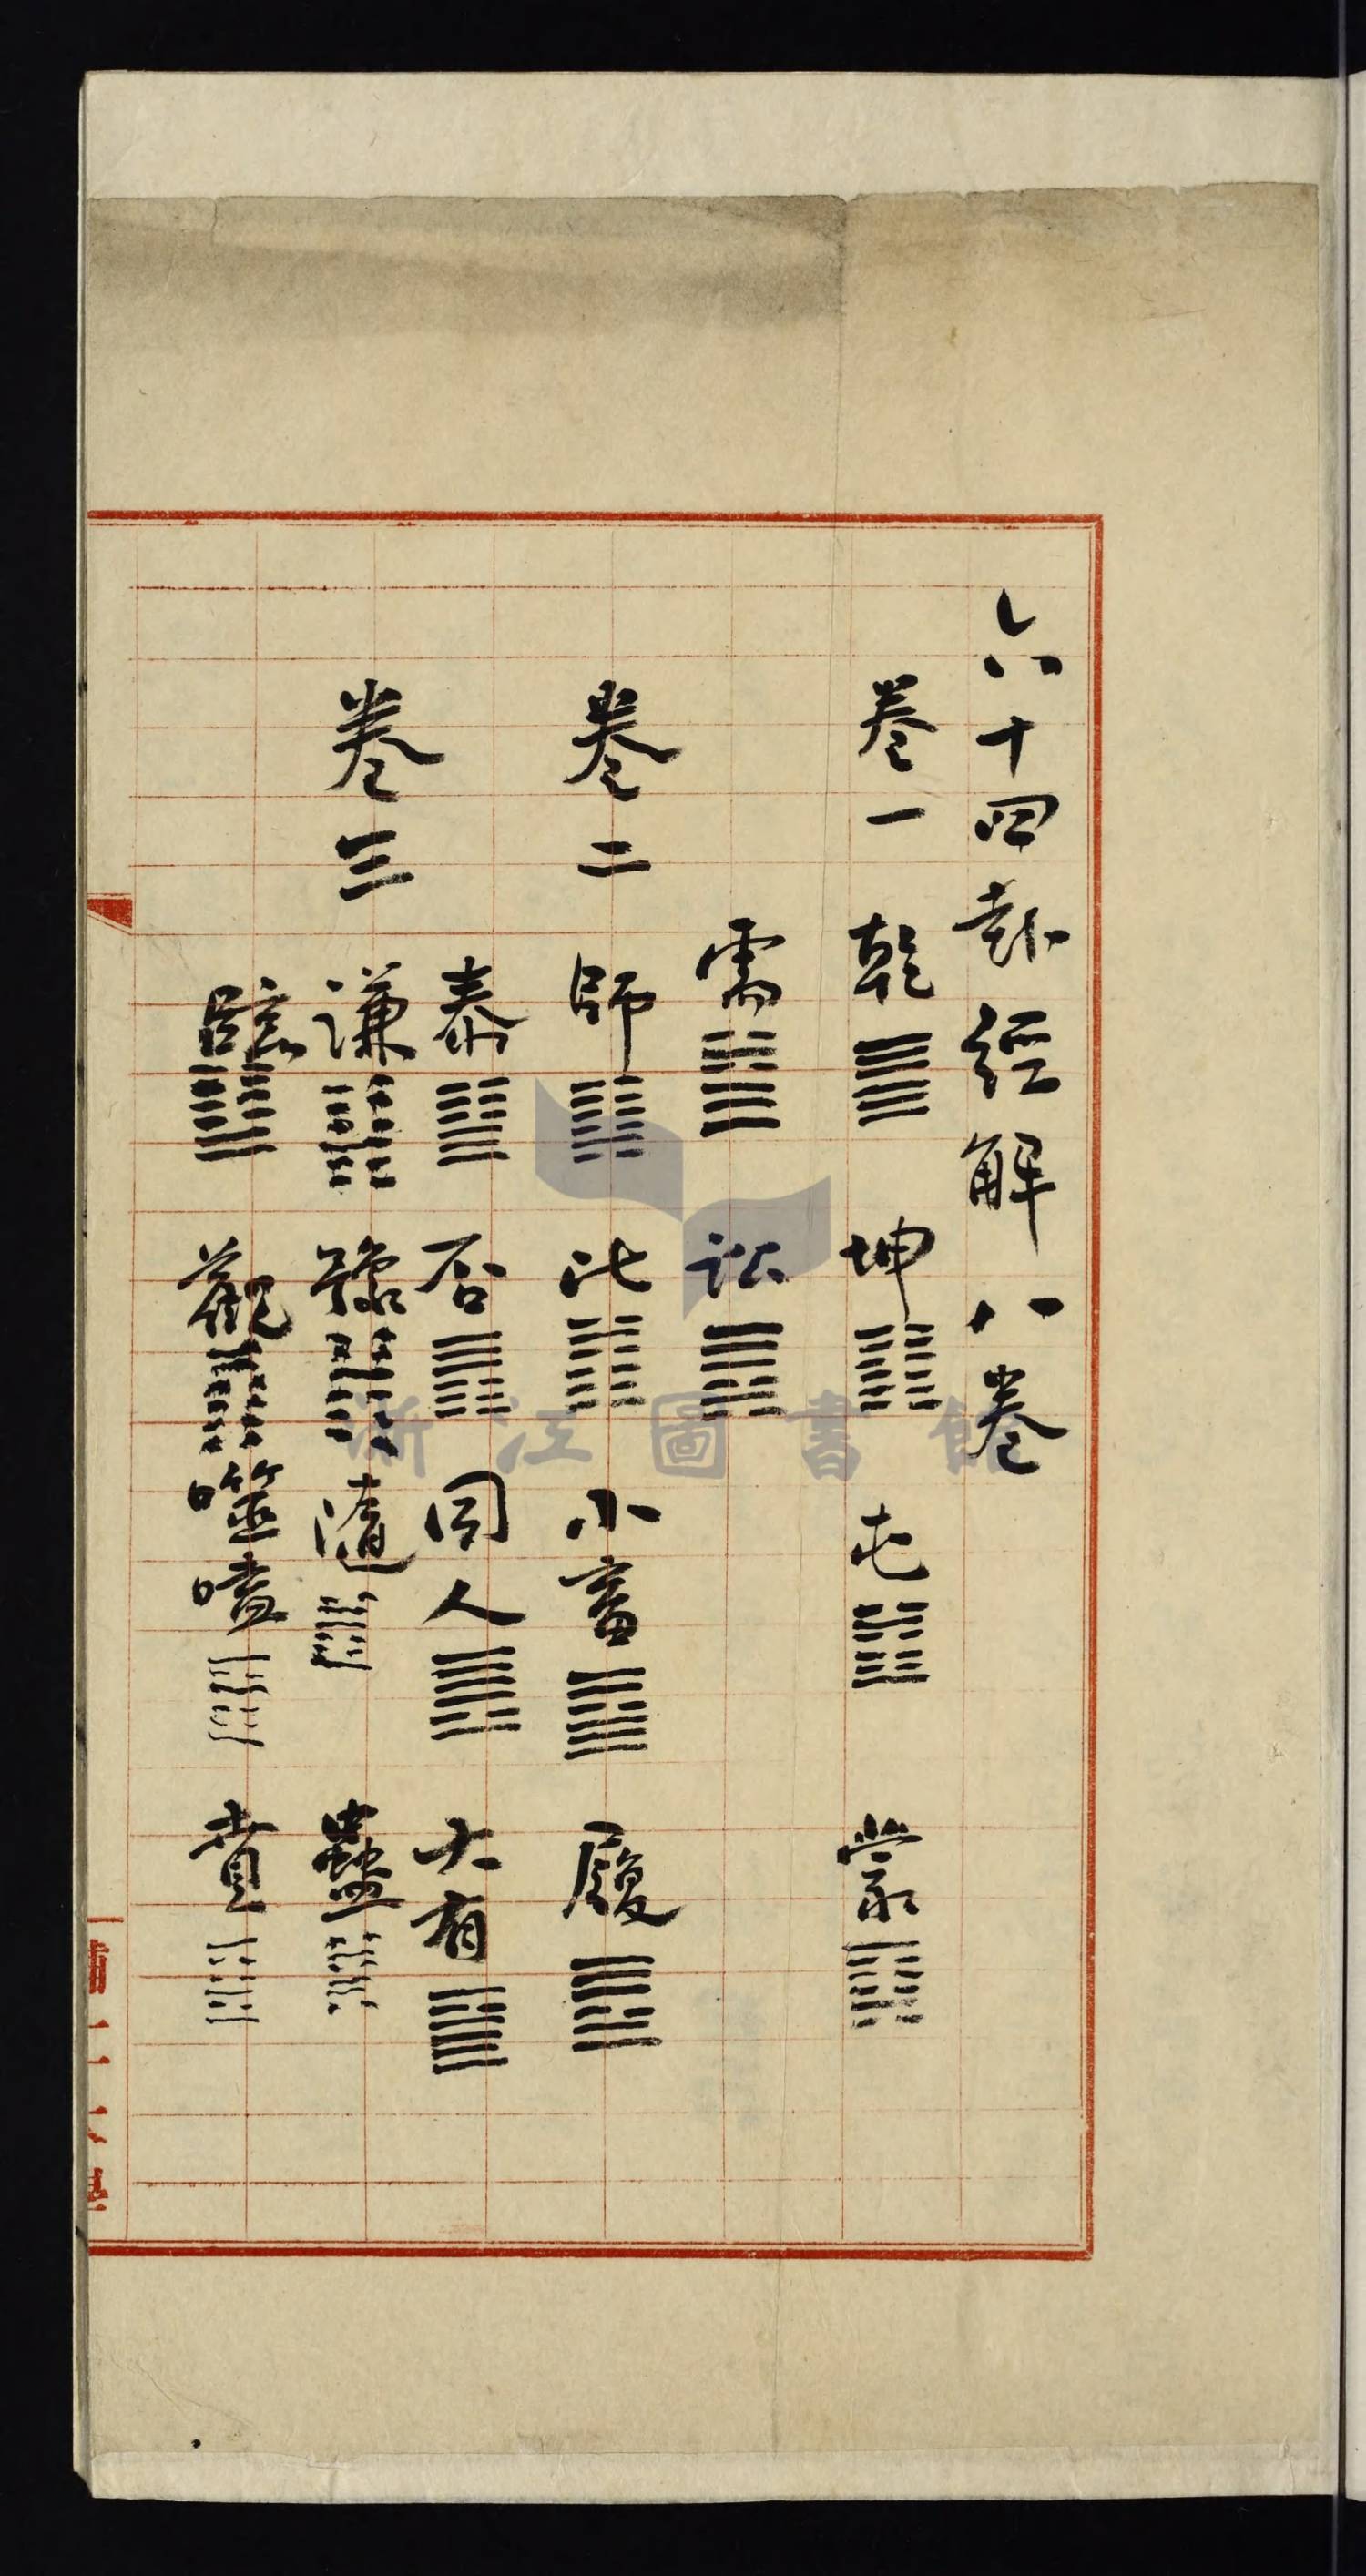 六十四卦經解八卷
卷一 乾䷀ 坤䷁ 屯䷂ 蒙䷃
需䷄ 訟䷅
卷二 師䷆ 比䷇ 小畜䷈ 履䷉
泰䷊ 否䷋ 同人䷌ 大有䷍
卷三 謙䷎ 豫䷏ 隨䷐ 蠱䷑
臨䷒ 觀䷓ 噬嗑䷔ 賁䷕
浙江圖書館